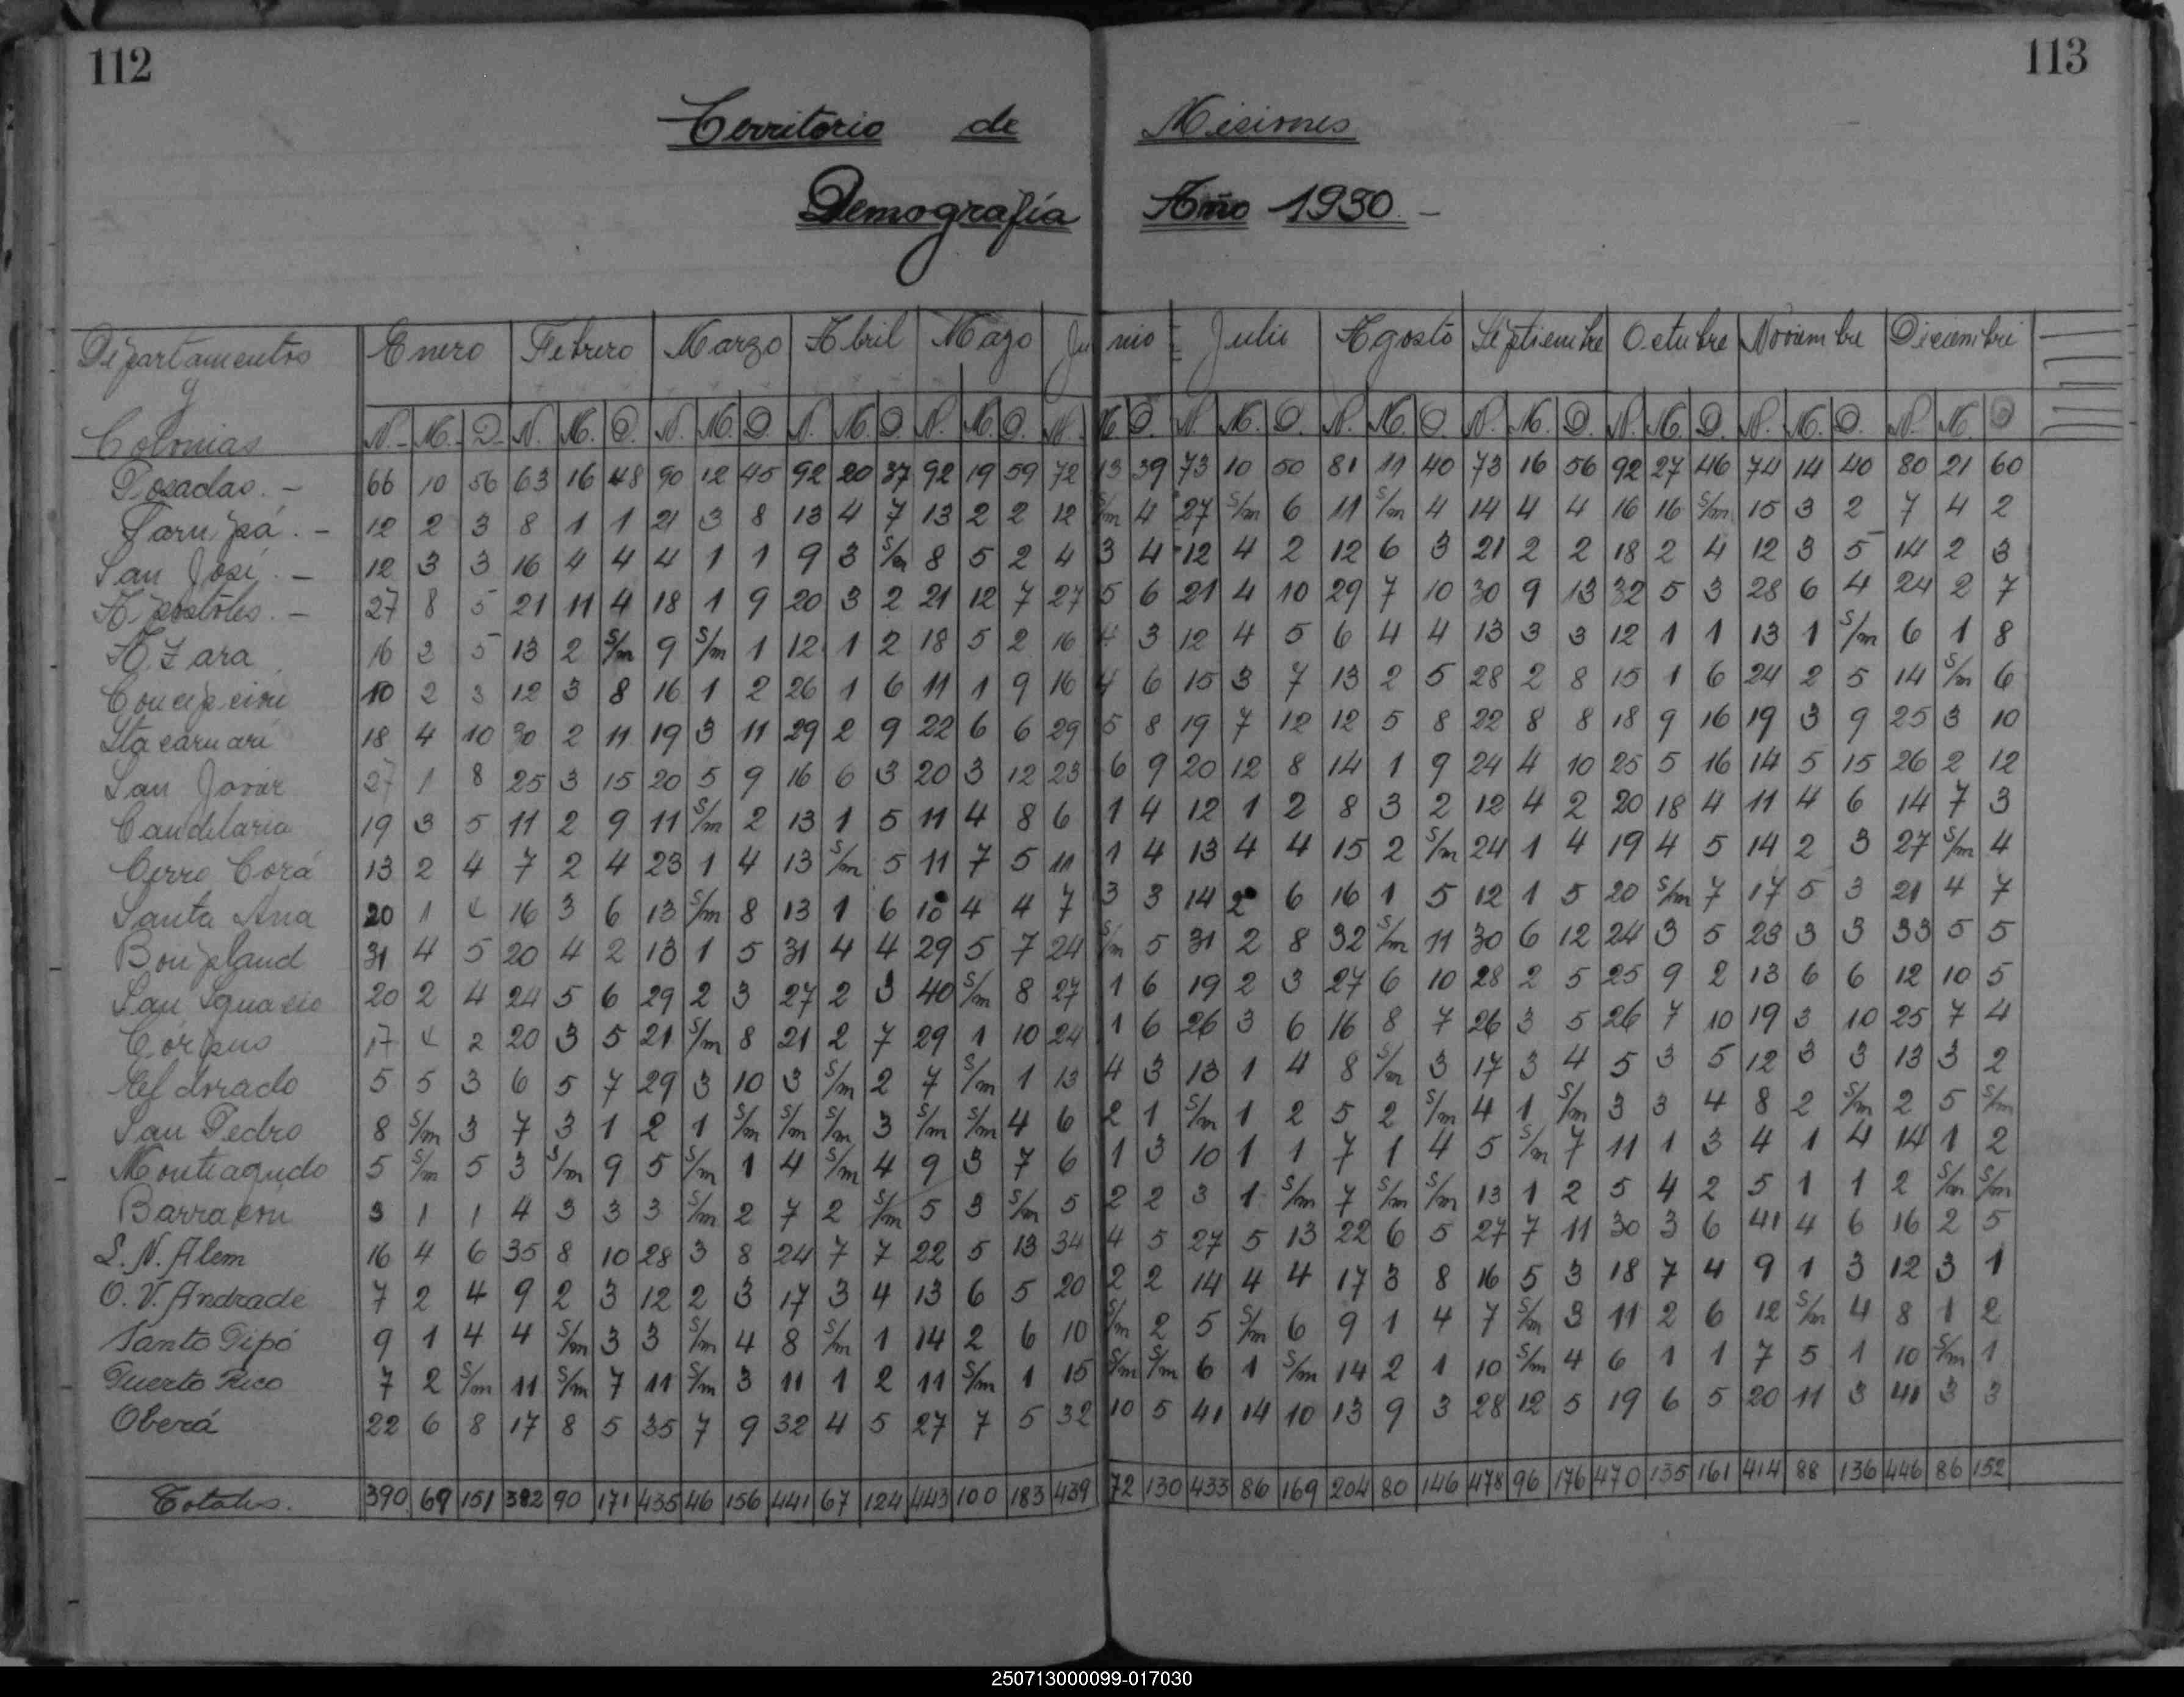 112
113
Territorio de Misiones
Demografía Año 1930. -
Departamentos y Colonias Enero Febrero Marzo Abril Mayo Junio Julio Agosto Septiembre Octubre Noviembre Diciembre
N. M. D. N. M. D. N. M. D. N. M. D. N. M. D. N. M. D. N. M. D. N. M. D. N. M. D. N. M. D. N. M. D. N. M. D.
Posadas. - 66 10 56 63 16 48 90 12 45 92 20 37 92 19 59 72 13 39 73 10 50 81 11 40 73 16 56 92 27 46 74 14 40 80 21 60
Garupá. - 12 2 3 8 1 1 21 3 8 13 4 7 13 2 2 12 S/m 4 27 S/m 6 11 S/m 4 14 4 4 16 16 S/m 15 3 2 7 4 2
San José. - 12 3 3 16 4 4 4 1 1 9 3 S/m 8 5 2 4 3 4 12 4 2 12 6 3 21 2 2 18 2 4 12 3 5 14 2 3
Apóstoles. - 27 8 5 21 11 4 18 1 9 20 3 2 21 12 7 27 5 6 21 4 10 29 7 10 30 9 13 32 5 3 28 6 4 24 2 7
Azara 16 2 5 13 2 S/m 9 S/m 1 12 1 2 18 5 2 16 4 3 12 4 5 6 4 4 13 3 3 12 1 1 13 1 S/m 6 1 8
Concepción 10 2 3 12 3 8 16 1 2 26 1 6 11 1 9 16 4 6 15 3 7 13 2 5 28 2 8 15 1 6 24 2 5 14 S/m 6
Itacaruaré 18 4 10 30 2 11 19 3 11 29 2 9 22 6 6 29 5 8 19 7 12 12 5 8 22 8 8 18 9 16 19 3 9 25 3 10
San Javier 27 1 8 25 3 15 20 5 9 16 6 3 20 3 12 23 6 9 20 12 8 14 1 9 24 4 10 25 5 16 14 5 15 26 2 12
Candelaria 19 3 5 11 2 9 11 S/m 2 13 1 5 11 4 8 6 1 4 12 1 2 8 3 2 12 4 2 20 18 4 11 4 6 14 7 3
Cerro Corá 13 2 4 7 2 4 23 1 4 13 S/m 5 11 7 5 11 1 4 13 4 4 15 2 S/m 24 1 4 19 4 5 14 2 3 27 S/m 4
Santa Ana 20 1 4 16 3 6 13 S/m 8 13 1 6 10 4 4 7 3 3 14 2 6 16 1 5 12 1 5 20 S/m 7 17 5 3 21 4 7
Bonpland 31 4 5 20 4 2 13 1 5 31 4 4 29 5 7 24 S/m 5 31 2 8 32 S/m 11 30 6 12 24 3 5 23 3 3 33 5 5
San Ignacio 20 2 4 24 5 6 29 2 3 27 2 3 40 S/m 8 27 1 6 19 2 3 27 6 10 28 2 5 25 9 2 13 6 6 12 10 5
Córpus 17 4 2 20 3 5 21 S/m 8 21 2 7 29 1 10 24 1 6 26 3 6 16 8 7 26 3 5 26 7 10 19 3 10 25 7 4
Eldorado 5 5 3 6 5 7 29 3 10 3 S/m 2 7 S/m 1 13 4 3 13 1 4 8 S/m 3 17 3 4 5 3 5 12 3 3 13 3 2
San Pedro 8 S/m 3 7 3 1 2 1 S/m S/m S/m 3 S/m S/m 4 6 2 1 S/m 1 2 5 2 S/m 4 1 S/m 3 3 4 8 2 S/m 2 5 S/m
Monteagudo 5 S/m 5 3 S/m 9 5 S/m 1 4 S/m 4 9 3 7 6 1 3 10 1 1 7 1 4 5 S/m 7 11 1 3 4 1 4 14 1 2
Barracón 3 1 1 4 3 3 3 S/m 2 7 2 S/m 5 3 S/m 5 2 2 3 1 S/m 7 S/m S/m 13 1 2 5 4 2 5 1 1 2 S/m S/m
L. N. Alem 16 4 6 35 8 10 28 3 8 24 7 7 22 5 13 34 4 5 27 5 13 22 6 5 27 7 11 30 3 6 41 4 6 16 2 5
O. V. Andrade 7 2 4 9 2 3 12 2 3 17 3 4 13 6 5 20 2 2 14 4 4 17 3 8 16 5 3 18 7 4 9 1 3 12 3 1
Santo Pipó 9 1 4 4 S/m 3 3 S/m 4 8 S/m 1 14 2 6 10 S/m 2 5 S/m 6 9 1 4 7 S/m 3 11 2 6 12 S/m 4 8 1 2
Puerto Rico 7 2 S/m 11 S/m 7 11 S/m 3 11 1 2 11 S/m 1 15 S/m S/m 6 1 S/m 14 2 1 10 S/m 4 6 1 1 7 5 1 10 S/m 1
Oberá 22 6 8 17 8 5 35 7 9 32 4 5 27 7 5 32 10 5 41 14 10 13 9 3 28 12 5 19 6 5 20 11 3 41 3 3
Totales. 390 69 151 382 90 171 435 46 156 441 67 124 443 100 183 439 72 130 433 86 169 204 80 146 478 96 176 470 135 161 414 88 136 446 86 152
250713000099-017030